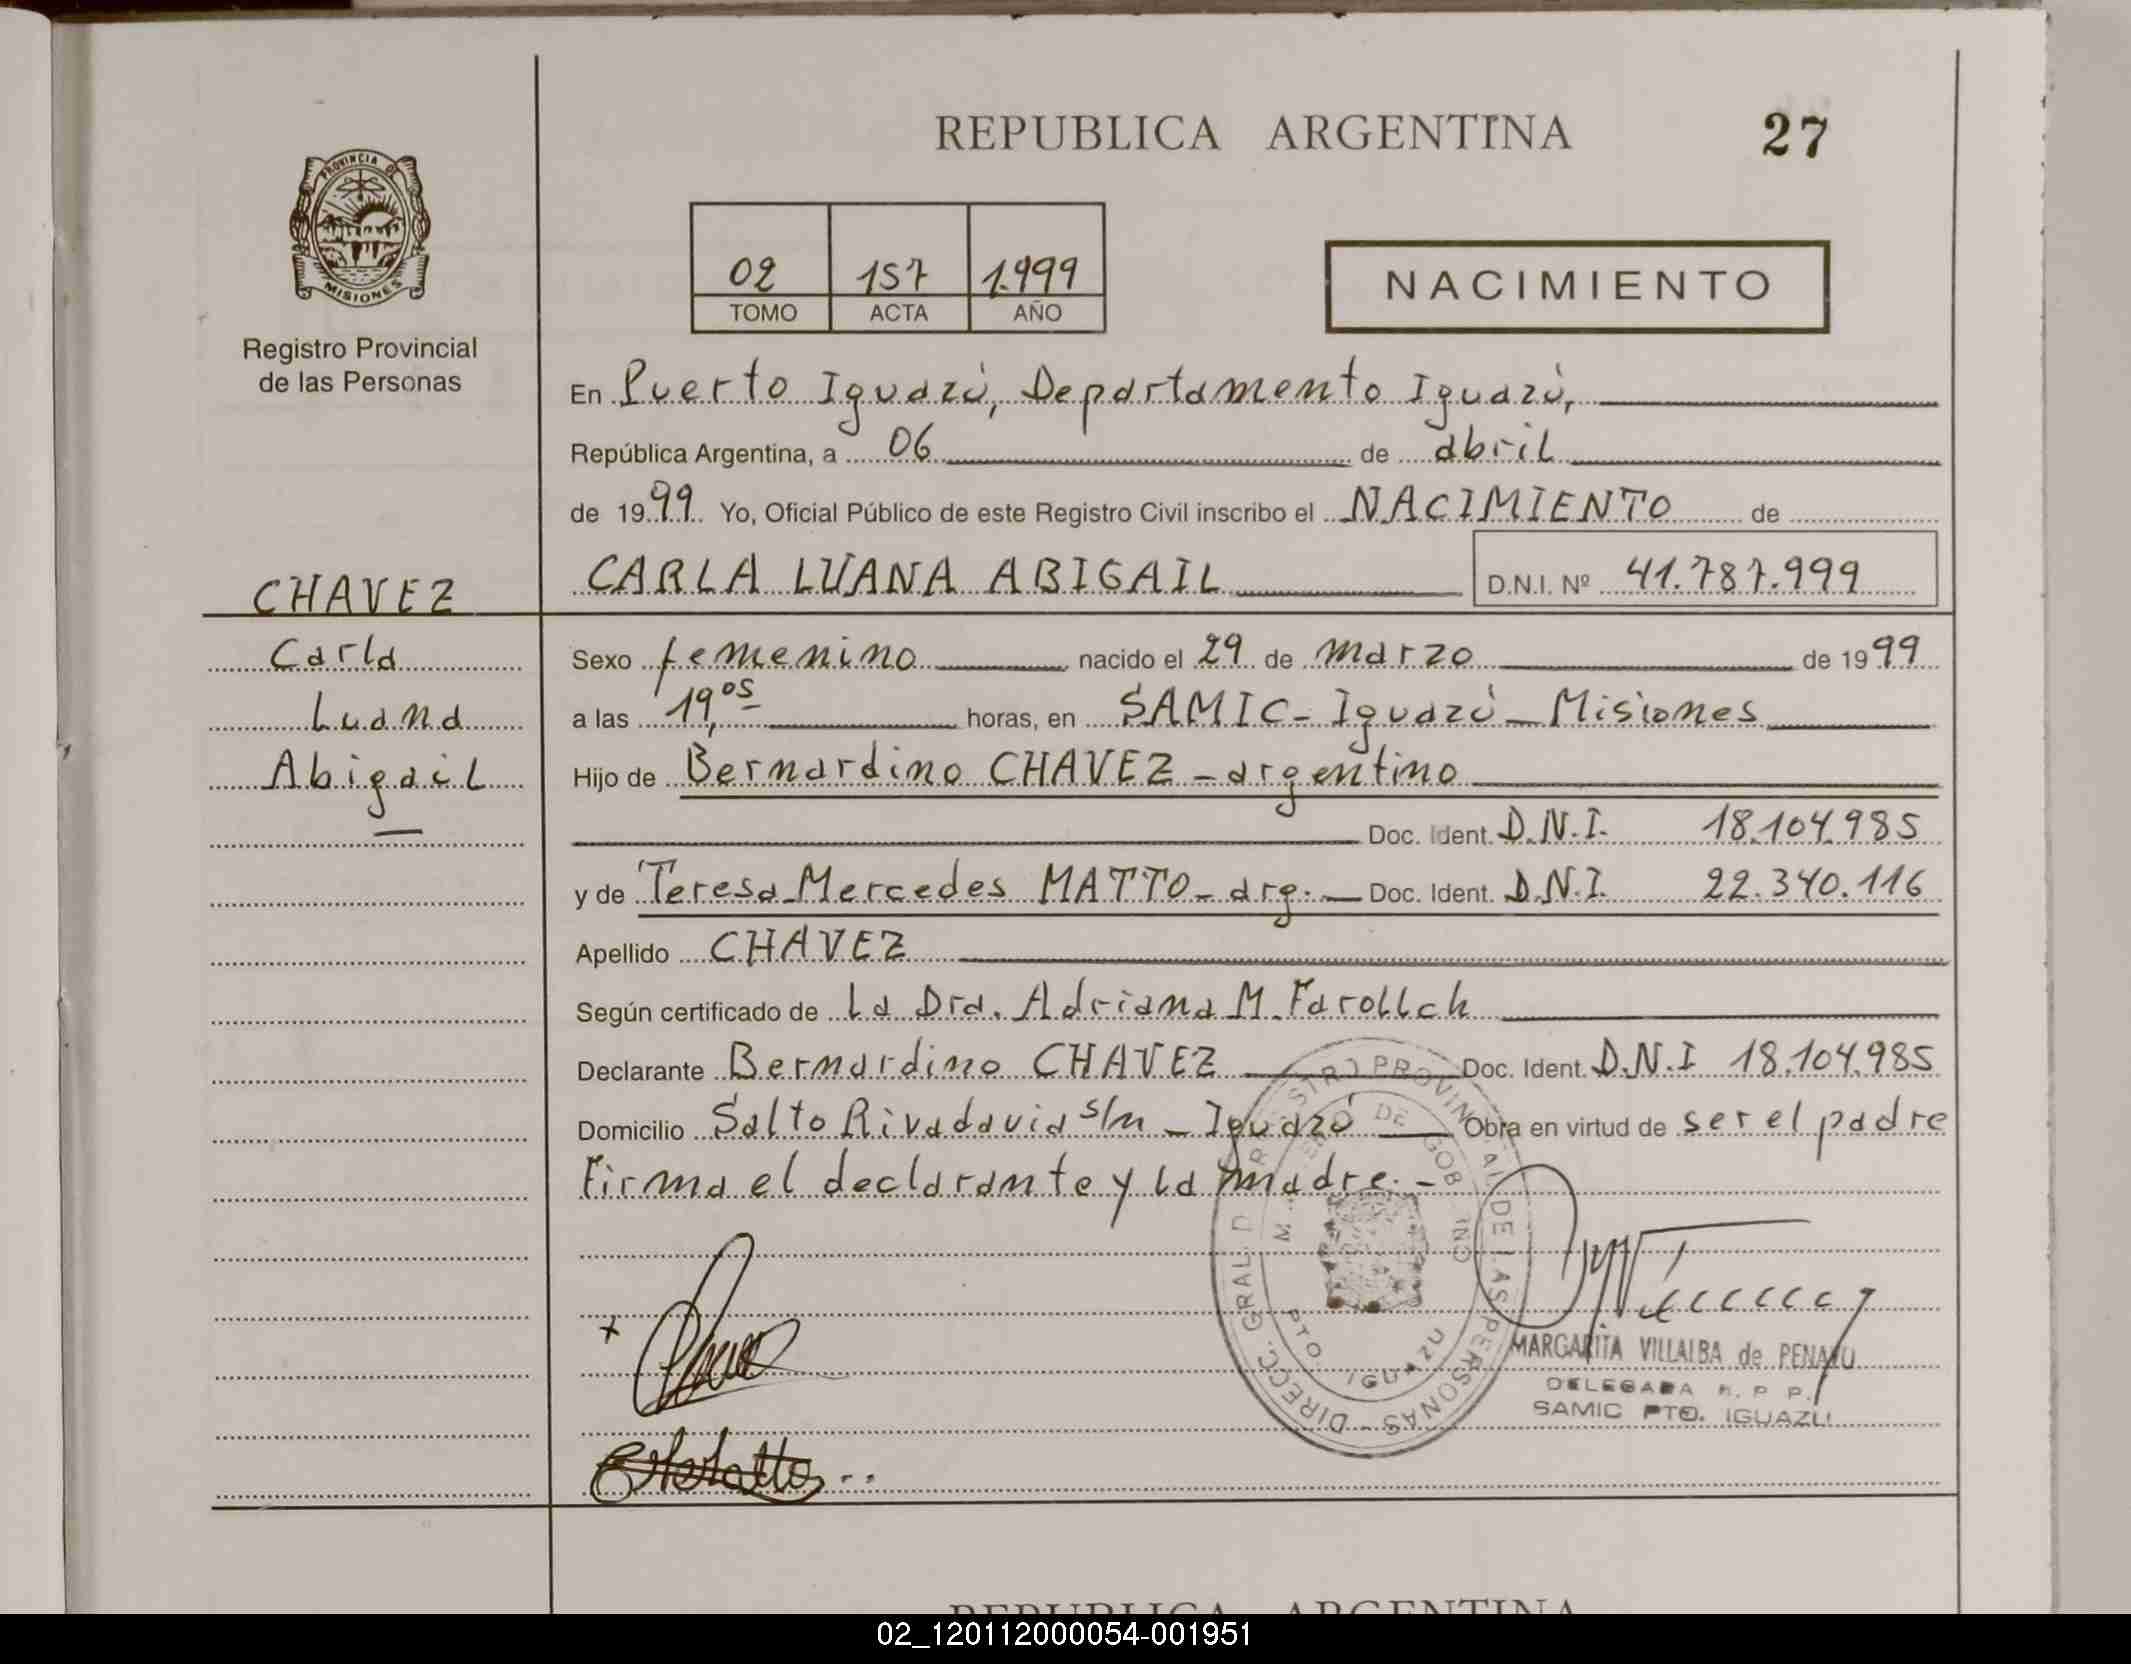 REPUBLICA ARGENTINA
27
PROVINCIA DE
MISIONES
Registro Provincial
de las Personas
02 157 1.999
TOMO ACTA AÑO
NACIMIENTO
En Puerto Iguazú, Departamento Iguazú,
República Argentina, a 06 de abril
de 1999 Yo, Oficial Público de este Registro Civil inscribo el NACIMIENTO de
CARLA LUANA ABIGAIL D.N.I. Nº 41.787.999
CHAVEZ
Carla
Luana
Abigail
Sexo femenino nacido el 29 de marzo de 1999
a las 19,05 horas, en SAMIC - Iguazú - Misiones
Hijo de Bernardino CHAVEZ - argentino
Doc. Ident. D.N.I. 18.104.985
y de Teresa Mercedes MATTO - arg. Doc. Ident. D.N.I. 22.340.116
Apellido CHAVEZ
Según certificado de La Dra. Adriana M. Farollch
Declarante Bernardino CHAVEZ Doc. Ident. D.N.I 18.104.985
Domicilio Salto Rivadavia s/n - Iguazú Obra en virtud de ser el padre
Firma el declarante y la madre. -
DIRECC. GRAL. DEL REGISTRO PROVINCIAL DE LAS PERSONAS
PTO. IGUAZU
MARGARITA VILLALBA de PENAYO
DELEGADA R. P P.
SAMIC PTO. IGUAZU
REPUBLICA ARGENTINA
02_120112000054-001951